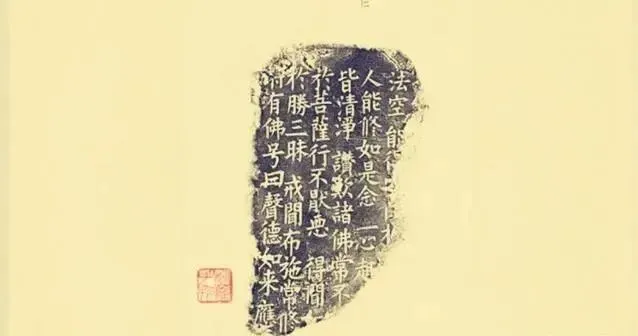 法空 能
人能修如是念 一心趣
皆清淨 讚歎諸佛常不
於菩薩行不厭惡 得聞
於勝三昧 戒聞布施常修
有佛号曰聲德如来應